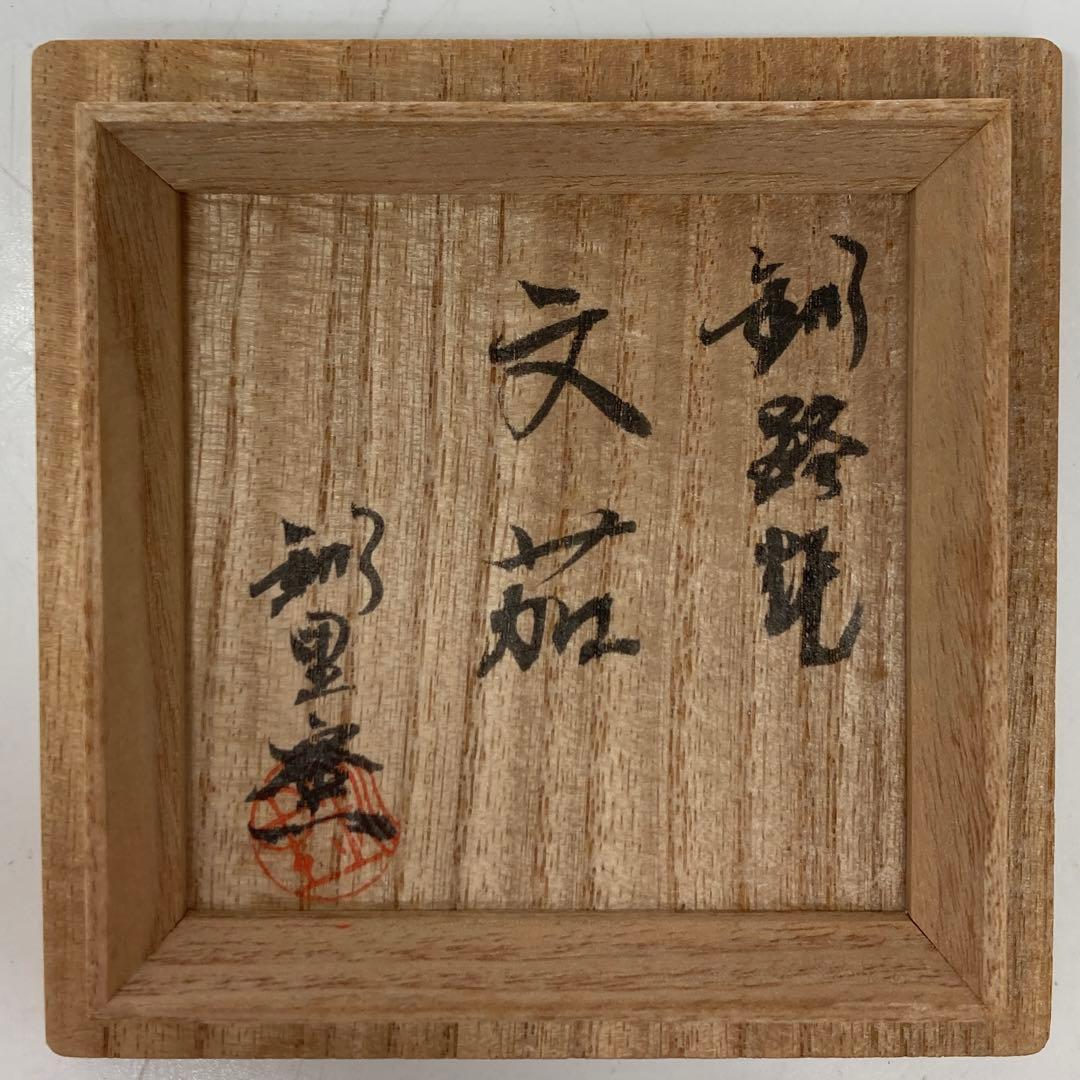 釧路焼
文茄
釧里窯